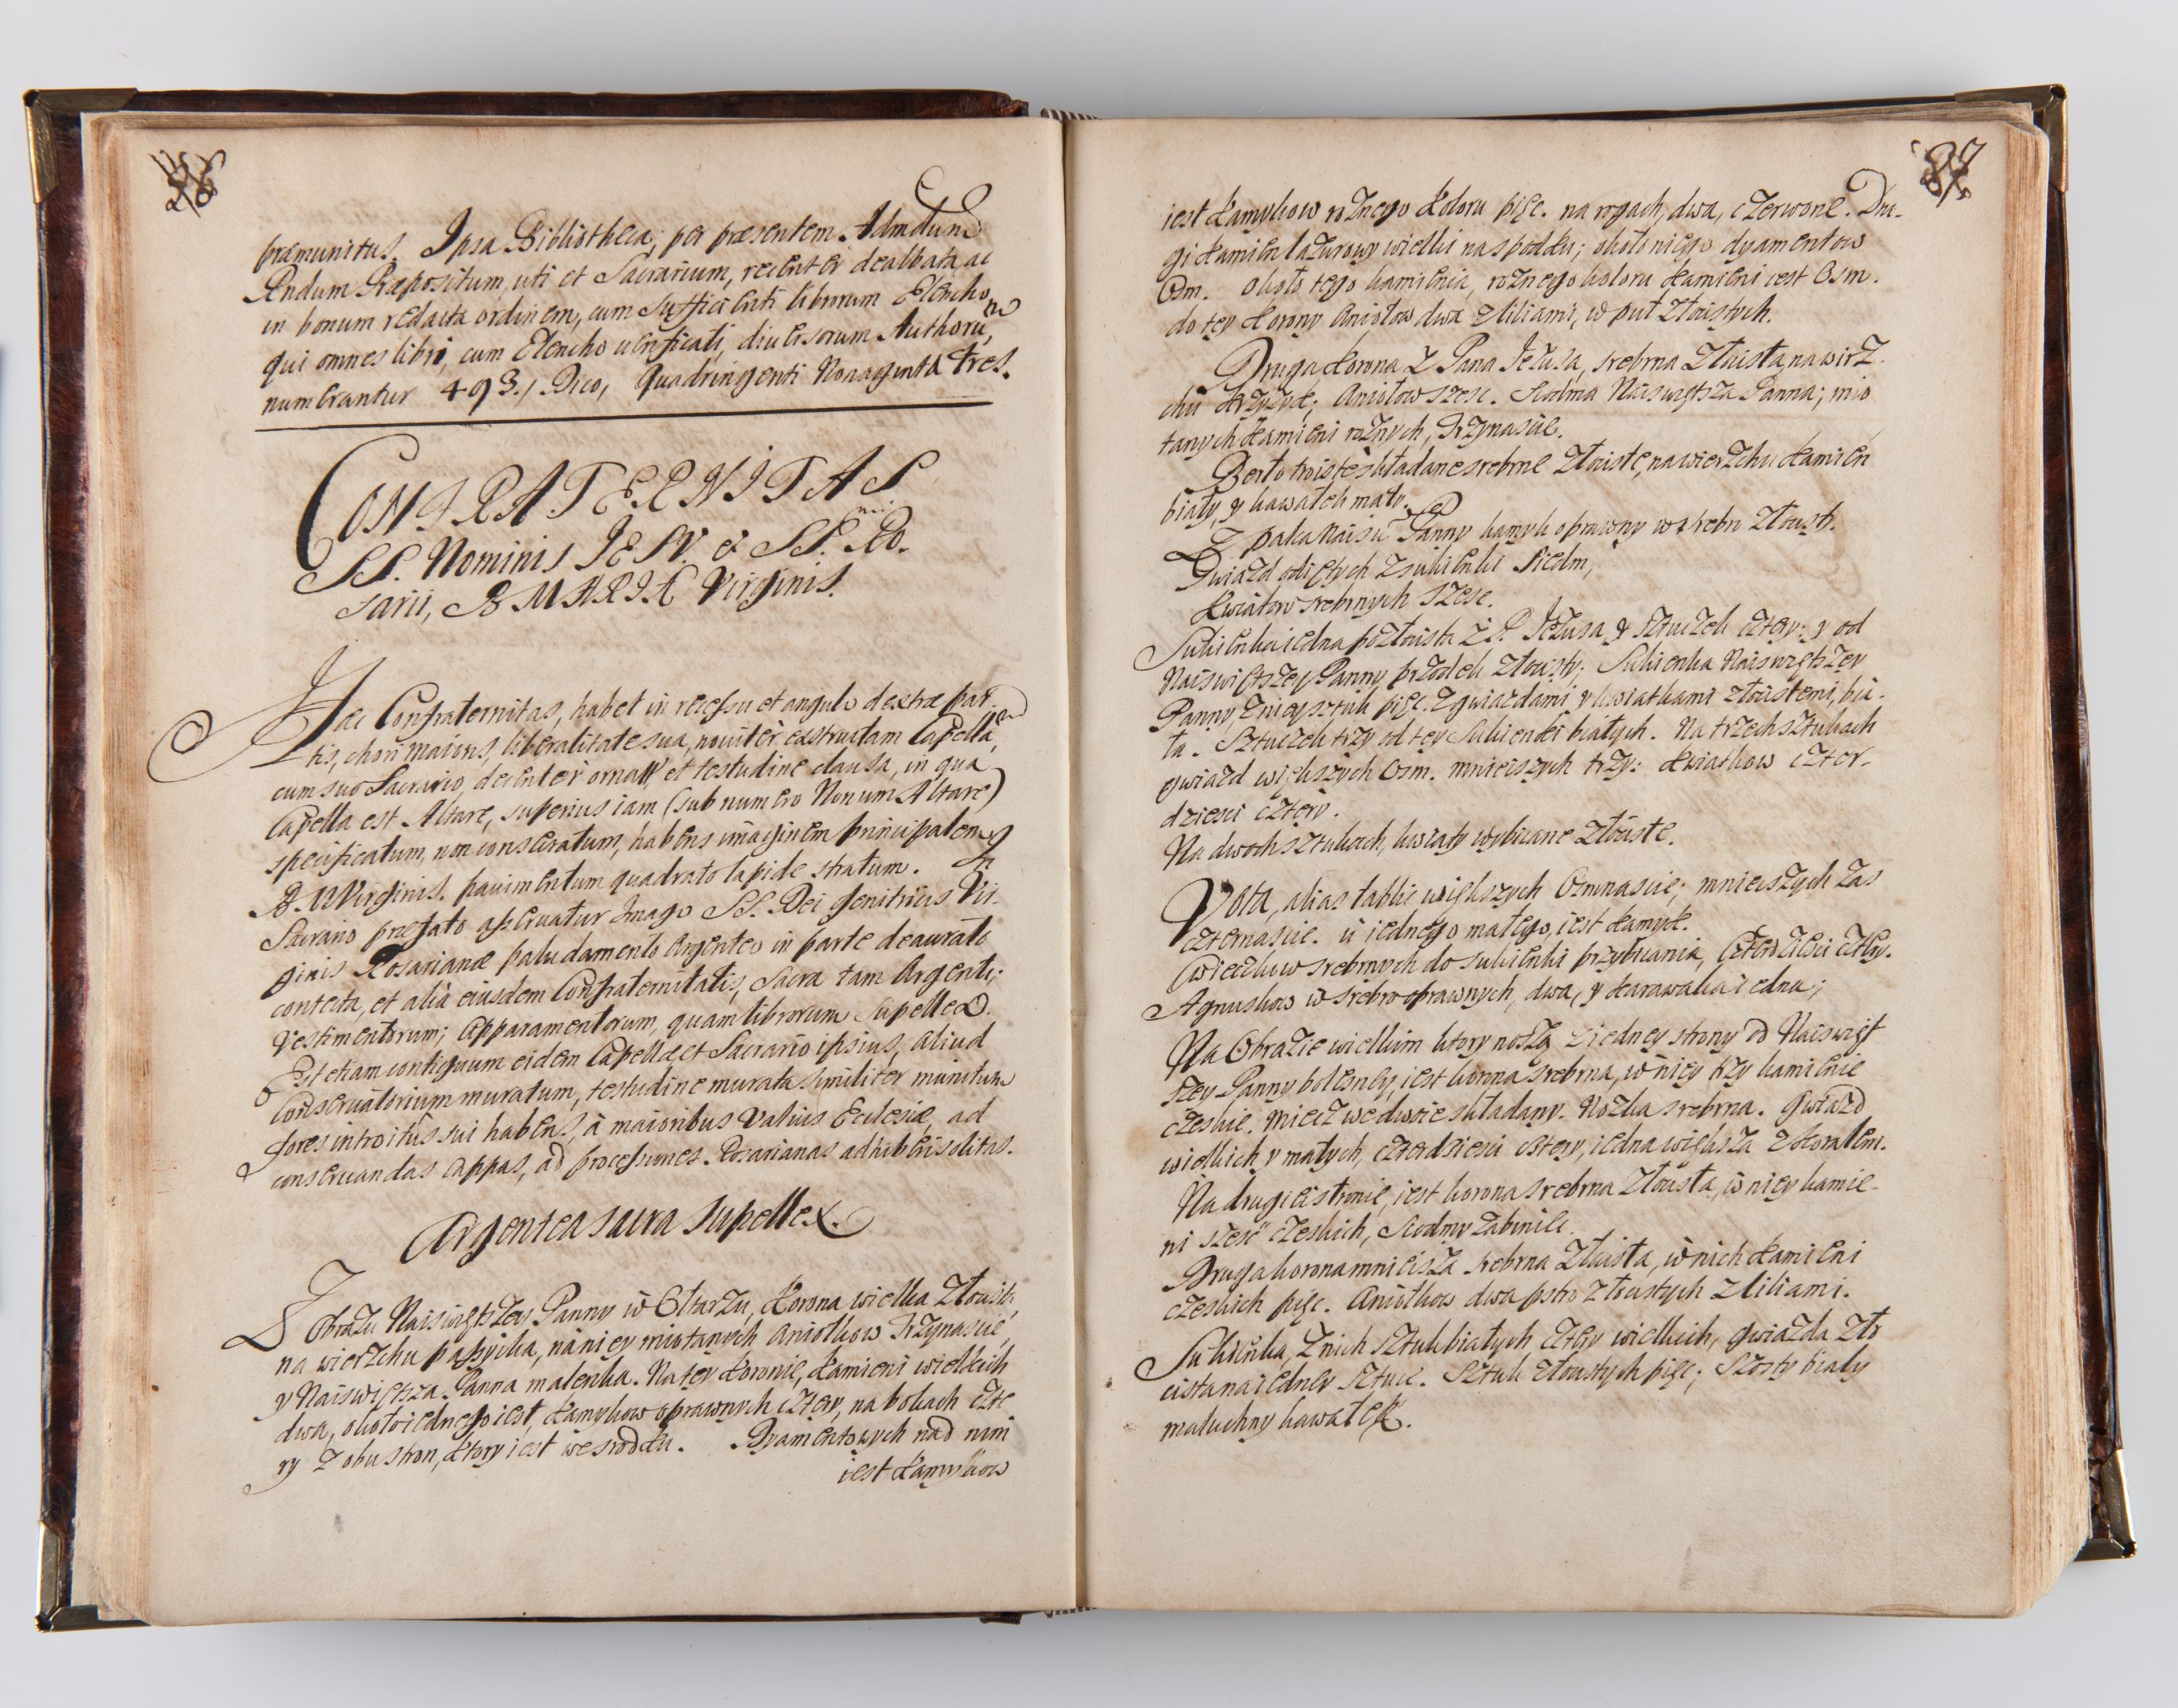 præmunitus. Ipsa Bibliotheca, per præsentem Admdum
Rndum Præpositum, uti et Sacrarium, recenter dealbata, ac
in bonum redacta ordinem, cum sufficienti librorum Elencho,
qui omnes libri, cum Elencho uerificati, diuersorum Authorũ,
numerantur 493./ Dico, Quadringenti Nonaginta tres.
CONFRATERNITAS
SS. Nominis IESV. et SS. Ro-
sarii, B MARIÆ Virginis.
Hæc Confraternitas, habet in recessu et angulo dextræ par-
tis, chori maioris, liberalitate sua, nouiter exstructam Capellã,
cum suo Sacrario, decenter ornatã et testudine clausã, in qua
Capella est Altare, superius iam (sub numero Nonum Altare)
specificatum, non consecratum, habens imaginem principalem
B. M Virginis. pauimentum quadrato lapide stratum. In
Sacrario præfato asseruatur Imago SS. Dei Genitricis Vir-
ginis Rosarianæ paludamento Argenteo in parte deaurato
contecta, et alia eiusdem Confraternitatis, Sacra tam Argenti,
Vestimentorum; Apparamentorum, quam librorum Supellex.
Est etiam contiguum eidem Capellæ et Sacrario ipsius, aliud
Conseruatorium muratum, testudine murata similiter munitum
fores introitus sui habens, à maioribus Valuis Ecclesiæ, ad
conseruandas Cappas, ad processiones Rosarianas adhiberi solitas.
Argentea sacra supellex.
Z Obrazu Naiswiętszey Panny w Ołtarzu, Korona wielka złocista,
na wierzchu passyika, na niey miotanych Aniołkow trzynascie,
y Naiswiętsza Panna malenka. Na tey Koronie, kamieni wielkich
dwa, około iednego iest, kamykow oprawnych cztery, na bokach czte
ry z obu stron, ktory iest wesrodku. Dyamentowych nad nim
iest kamykow
iest kamykow rożnego koloru pięc. na rogach, dwa, czerwone. Dru-
gi kamien lazurowy wielki na spodku; około niego dyamentow
Osm. Około tego kamienia, rożnego koloru kamieni iest Osm.
do tey Korony Aniołow dwa z liliami, w puł złocistych.
Druga korona z Pana Iezusa, srebrna złocista, na wirz-
chu krzyżyk; Aniołow szesc. Siodma Naiswiętsza Panna; mio
tanych kamieni rożnych, trzynascie.
Berło troiste składane srebrne złociste, na wierzchu kamien
biały, y kawałek mały.
Z palca Naisw Panny kamyk oprawny w srebro złocist.
Gwiazd odiętych z sukienki siedm,
Kwiatow srebrnych szesc.
Sukienka iedna pozłocista z P. Iezusa, y sztuczek cztery: y od
Naiswiętszey Panny przodek złocisty. Sukienka Naiswiętszey
Panny, z niey sztuk pięc. z gwiazdami y kwiatkami złocistemi, bia-
ła. Sztuczek trzy od tey Sukienki białych. Na trzech sztukach
gwiazd większych Osm. mnieiszych trzy: kwiatkow czter-
dziesci cztery.
Na dwoch sztukach, kwiaty wybiiane złociste.
Vota, alias tablic większych Osmnascie; mnieiszych zas
czternascie. u iednego małego, iest kamyk.
Cwieczkow srebrnych do sukienki przybiiania, Czterdziesci cztery.
Agnuskow w srebro oprawnych, dwa, y karawaka iedna;
Na Obrazie wielkim ktory noszą z iedney strony od Naiswięt
szey Panny bolesney, iest korona srebrna, w niey trzy kamienie
czeskie. Miecz we dwoie składany. Nożka srebrna. Gwiazd
wielkich y małych, czterdziesci cztery, iedna większa z koralem.
Na drugiei stronie, iest korona srebrna złocista, w niey kamie-
ni szesc czeskich, siodmy rabinik.
Druga korona mnieisza srebrna złocista, w nich kamieni
czeskich pięc. Aniołkow dwa pstro złocistych z liliami.
Sukienka, z nich sztuk białych cztery wielkich, gwiazda zło
cista na iedney sztuce. Sztuk złocistych pięc; Szosty biały
maluchny kawałek.